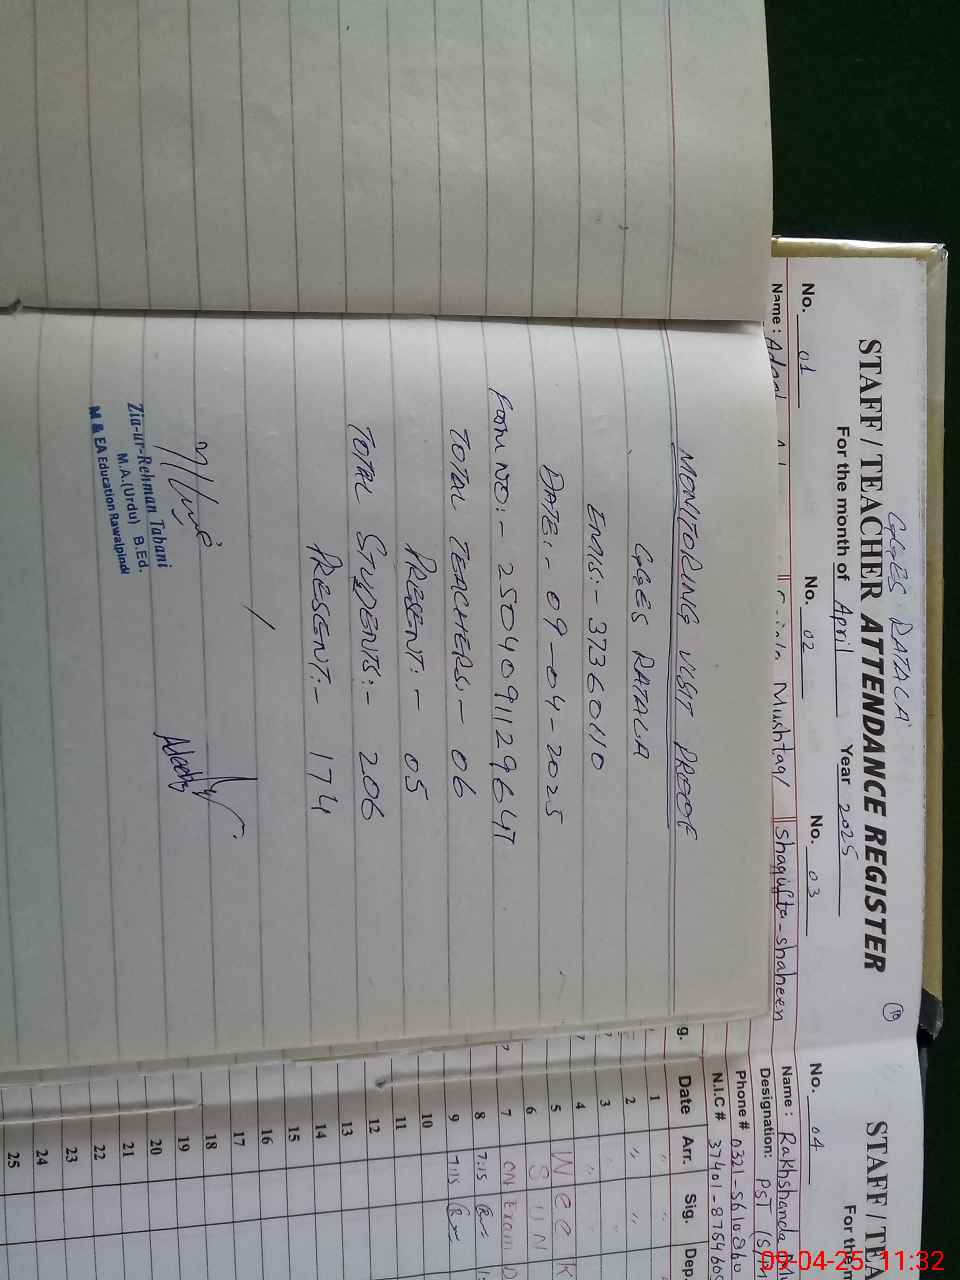 MONITORING VISIT PROOF
GGES RATALA
EMIS:- 37360110
DATE:- 09-04-2025
FORM NO:- 250409112964
TOTAL TEACHERS:- 06
PRESENT:- 05
TOTAL STUDENTS:- 206
PRESENT:- 174
Zia-ur-Rehman Tabani
M.A.(Urdu) B.Ed.
M & EA Education Rawalpindi
GGES RATALA
STAFF / TEACHER ATTENDANCE REGISTER
For the month of April Year 2025
10
No. 01 No. 02 No. 03
Name : Mushtaq Shagufta-shaheen
STAFF / TEA
For the
No. 04
Name : Rakhshanda
Designation: PST
Phone # 0321-5610860
N.I.C # 37401-8754
Date Arr. Sig. Dep.
1 " "
2 " "
3 "
4 "
5 W e e k
6 S U N
7 on Exam D
8 7:15
9 7:15
10
11
12
13
14
15
16
17
18
19
20
21
22
23
24
25
09-04-25, 11:32